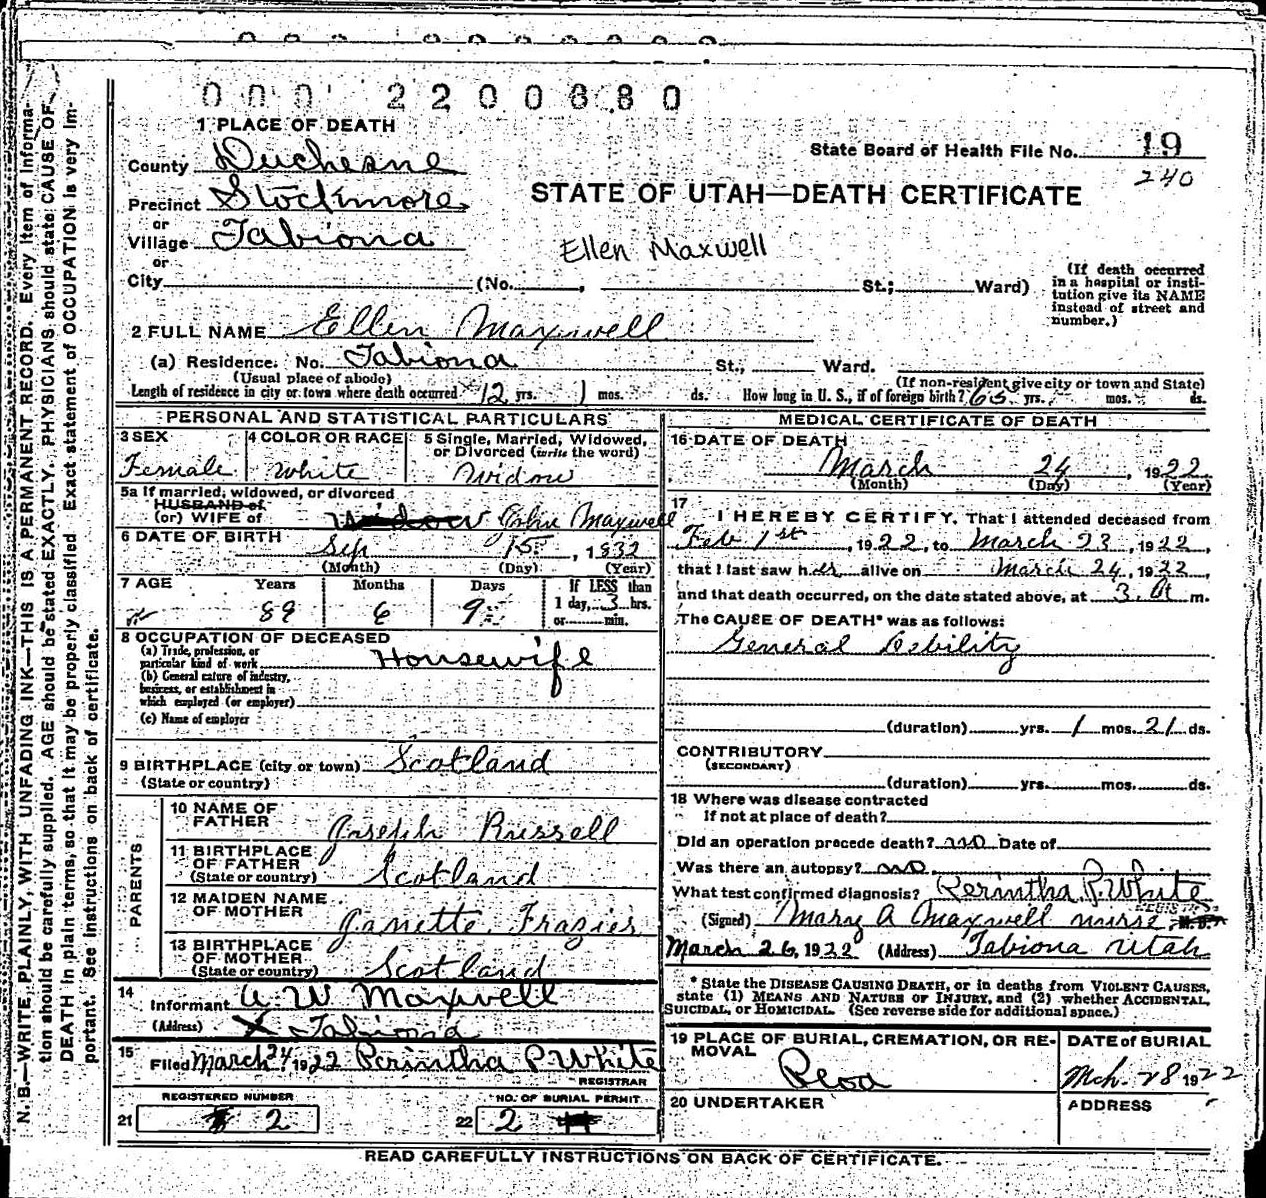 000 2200680
1 PLACE OF DEATH
County Duchesne
State Board of Health File No. 19
240
Precinct Stockmore
or
Village Tabiona
or
City (No. , St.; Ward)
STATE OF UTAH—DEATH CERTIFICATE
Ellen Maxwell
(If death occurred in a hospital or institution give its NAME instead of street and number.)
2 FULL NAME Ellen Maxwell
(a) Residence. No. Tabiona St., Ward.
(Usual place of abode) (If non-resident give city or town and State)
Length of residence in city or town where death occurred 12 yrs. 1 mos. ds. How long in U. S., if of foreign birth? 65 yrs. mos. ds.
PERSONAL AND STATISTICAL PARTICULARS
3 SEX
Female
4 COLOR OR RACE
White
5 Single, Married, Widowed, or Divorced (write the word)
Widow
5a If married, widowed, or divorced
HUSBAND of
(or) WIFE of Widow John Maxwell
6 DATE OF BIRTH
Sep 15, 1832
(Month) (Day) (Year)
7 AGE Years Months Days If LESS than
89 6 9 1 day, 3 hrs.
or min.
8 OCCUPATION OF DECEASED
(a) Trade, profession, or particular kind of work Housewife
(b) General nature of industry, business, or establishment in which employed (or employer)
(c) Name of employer
9 BIRTHPLACE (city or town) Scotland
(State or country)
PARENTS
10 NAME OF FATHER Joseph Russell
11 BIRTHPLACE OF FATHER
(State or country) Scotland
12 MAIDEN NAME OF MOTHER Janette Frazier
13 BIRTHPLACE OF MOTHER
(State or country) Scotland
14
Informant W Maxwell
(Address) X Tabiona
15
Filed March 24 1922 Perintha P. White
REGISTRAR
REGISTERED NUMBER
21 2
NO. OF BURIAL PERMIT
22 2
MEDICAL CERTIFICATE OF DEATH
16 DATE OF DEATH
March 24, 1922
(Month) (Day) (Year)
17
I HEREBY CERTIFY, That I attended deceased from
Feb 1st, 1922, to March 23, 1922,
that I last saw her alive on March 24, 1922,
and that death occurred, on the date stated above, at 3 A m.
The CAUSE OF DEATH* was as follows:
General Debility
(duration) yrs. 1 mos. 21 ds.
CONTRIBUTORY
(SECONDARY)
(duration) yrs. mos. ds.
18 Where was disease contracted
if not at place of death?
Did an operation precede death? no Date of
Was there an autopsy? no
What test confirmed diagnosis? Perintha P. White
(Signed) Mary A Maxwell nurse M.D.
March 26, 1922 (Address) Tabiona Utah
* State the DISEASE CAUSING DEATH, or in deaths from VIOLENT CAUSES,
state (1) MEANS AND NATURE OF INJURY, and (2) whether ACCIDENTAL,
SUICIDAL, or HOMICIDAL. (See reverse side for additional space.)
19 PLACE OF BURIAL, CREMATION, OR REMOVAL
Peoa
DATE of BURIAL
Mch. 28 1922
20 UNDERTAKER
ADDRESS
READ CAREFULLY INSTRUCTIONS ON BACK OF CERTIFICATE.
N. B.—WRITE PLAINLY, WITH UNFADING INK—THIS IS A PERMANENT RECORD. Every item of information should be carefully supplied. AGE should be stated EXACTLY. PHYSICIANS should state CAUSE OF DEATH in plain terms, so that it may be properly classified. Exact statement of OCCUPATION is very important. See instructions on back of certificate.